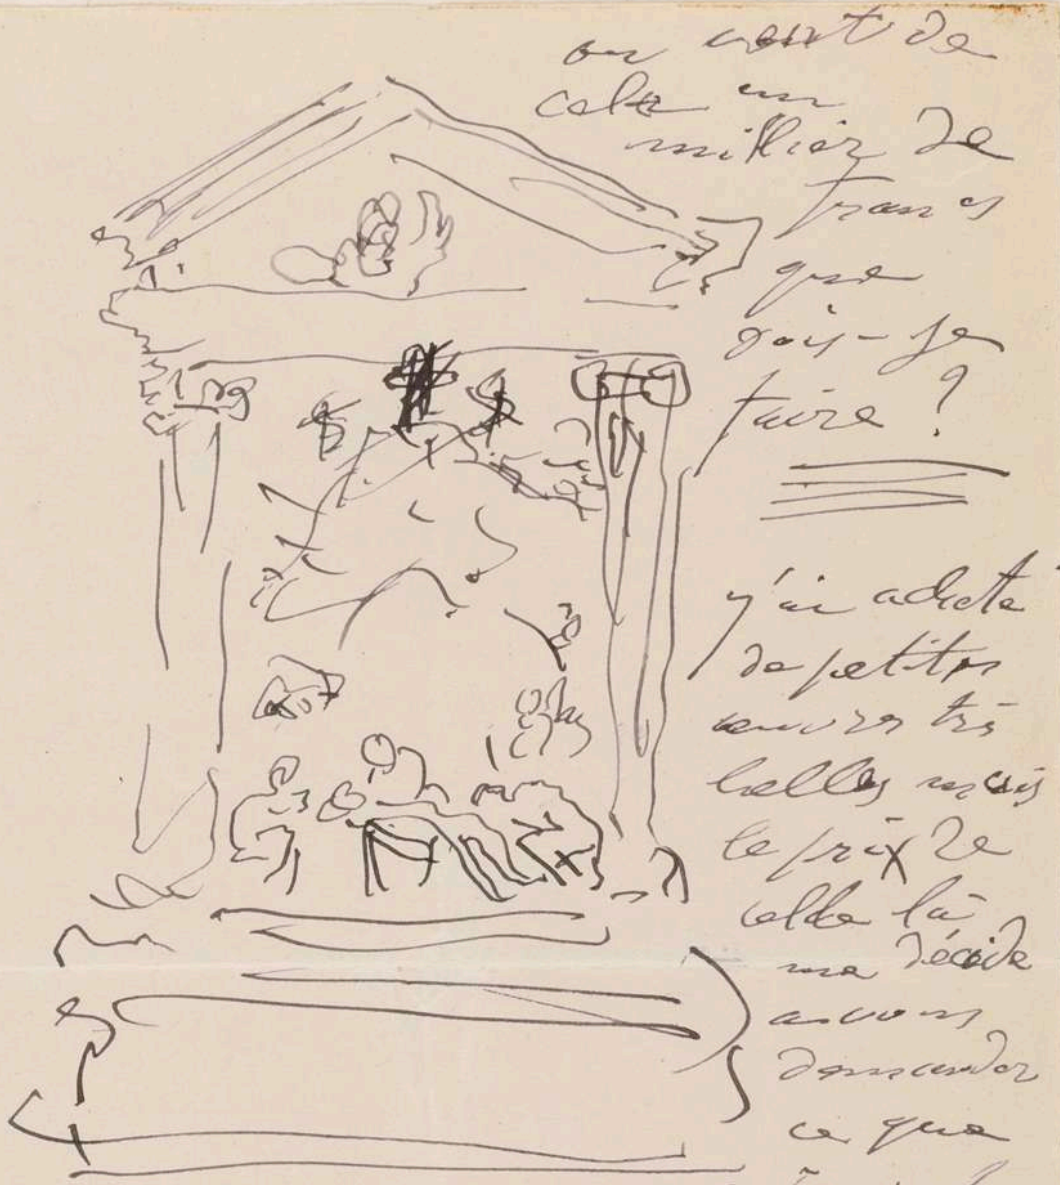 on veut de
cela un
millier de
francs
que
dois-je
faire ?
j'ai acheté
de petites
œuvres très
belles mais
le prix de
celle là
me décide
a vous
demander
ce que